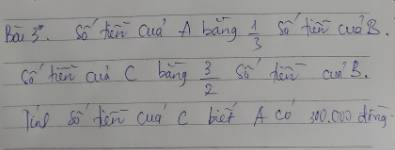 Bài 3. Số tiền của A bằng 1/3 số tiền của B.
Số tiền của C bằng 3/2 số tiền của B.
Tính số tiền của C biết A có 300.000 đồng.